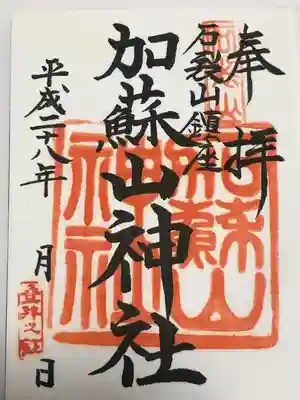 奉拝
石裂山鎮座
加蘇山神社
平成二十八年 月 日